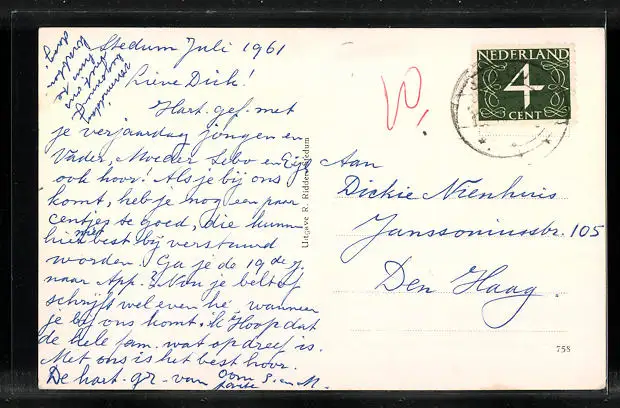 Stedum Juli 1961
Lieve Dick!
Hart. gef. met
je verjaardag jongen en
Vader, Moeder Sebo en
ook hoor! Als je bij ons
komt, heb je nog een paar
centjes te goed, die kunnen
niet best bij verstuurd
worden. Ga je de 19de j.
naar App.? Nou je belt of
schrijft wel even hè wanneer
je bij ons komt. Ik Hoop dat
de hele fam. wat op dreef is.
Met ons is het best hoor.
De hart. gr. van Oom
tante S. en M.
Uitgave R. Ridder, Stedum
NEDERLAND
4
CENT
Aan
Dickie Nienhuis
Janssoniusstr. 105
Den Haag.
758